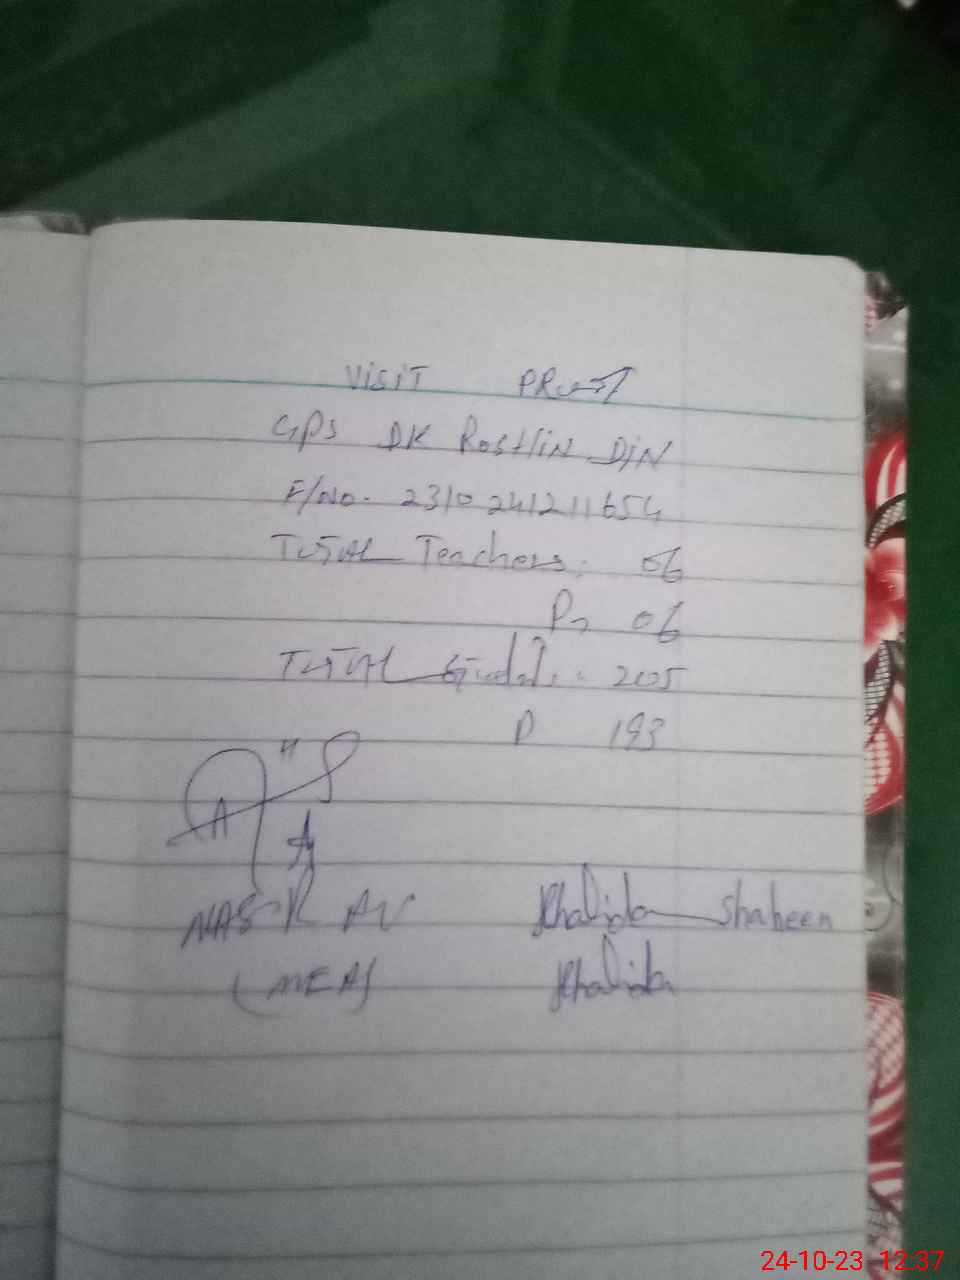 VISIT PROOF
GPS DK ROSHIN DIN
F/NO. 2310241211654
TOTAL Teachers: 06
P, 06
TOTAL : 205
P 193
A
NASIR
(MEA)
Khalida Shaheen
Khalida
24-10-23 12:37